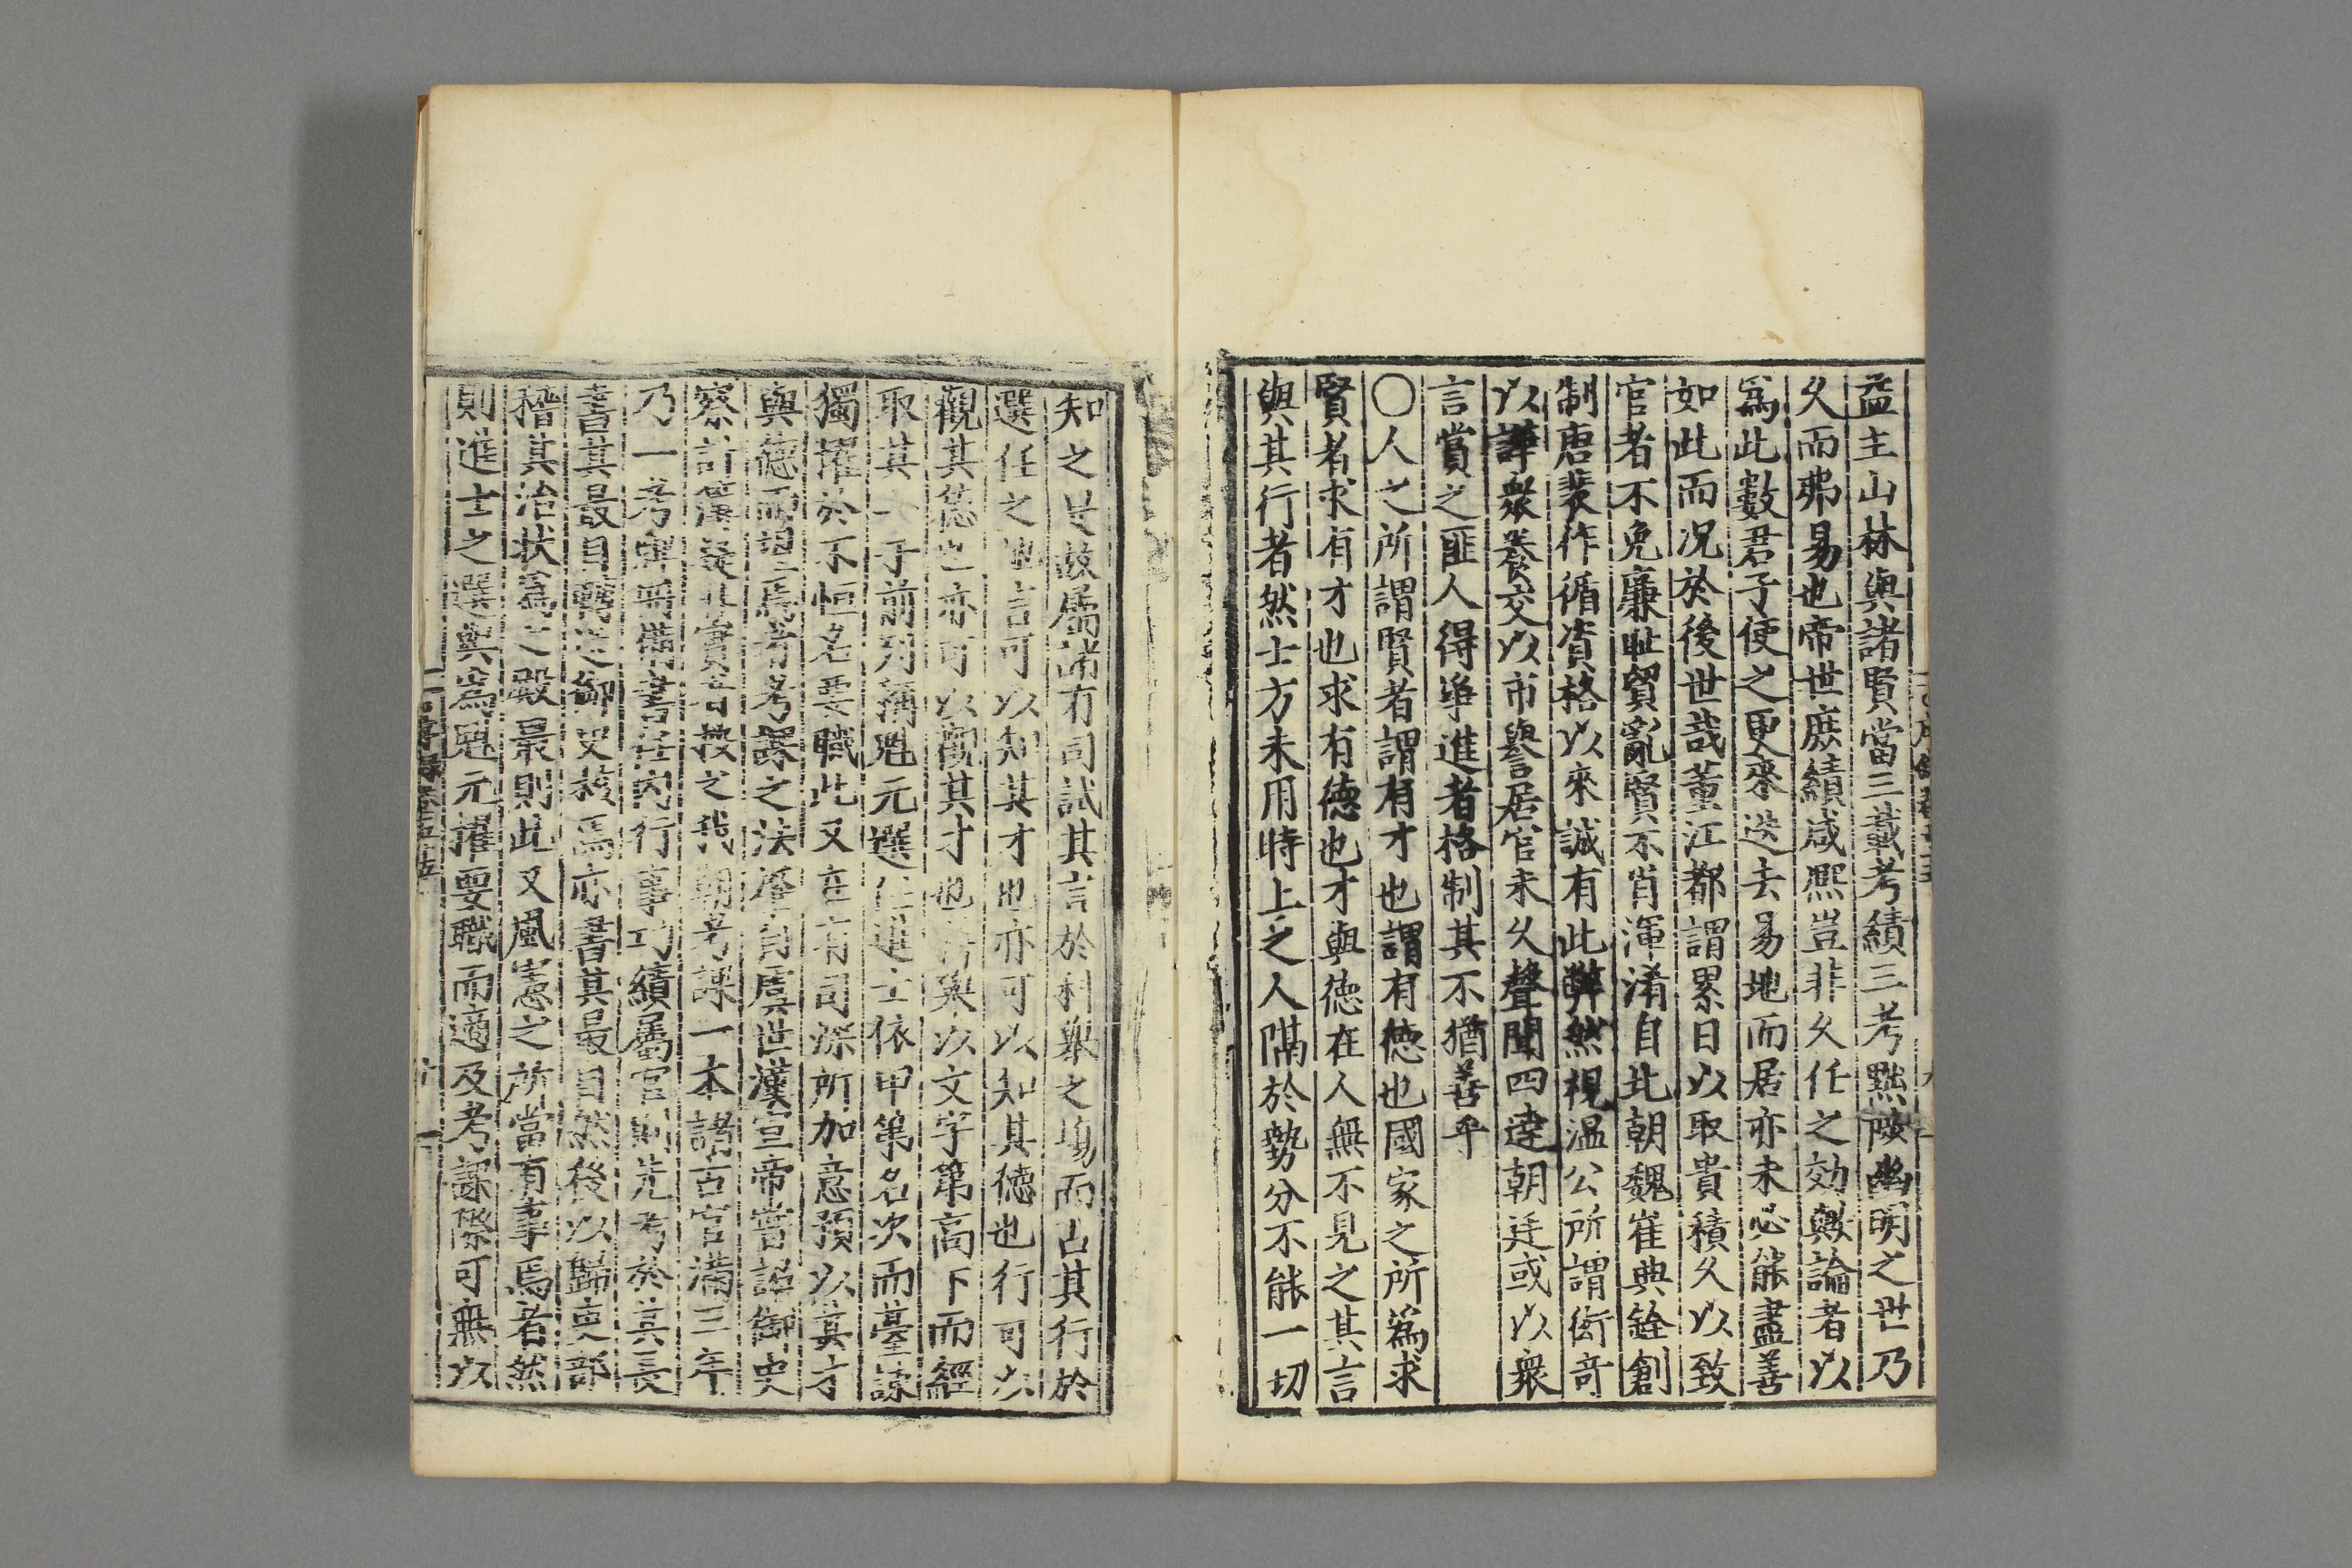 益主山林與諸賢當三載考績三考黜陟幽明之世乃
乆而弗易也帝世庶績咸熈豈非乆任之効與論者以
爲此數君子使之更來迭去易地而居亦未必能盡善
如此而况於後世哉董江都謂累日以取貴積乆以致
官者不免廉耻貿亂賢不肖渾淆自北朝魏崔典銓創
制唐裴作循資格以來誠有此弊然視温公所謂衒竒
以譁衆養交以市譽居官未乆聲聞四達朝廷或以衆
言賞之匪人得竝進者格制其不猶善乎
○人之所謂賢者謂有才也謂有德也國家之所爲求
賢者求有才也求有德也才與德在人無不見之其言
與其行者然士方未用時上之人隔於勢分不能一切
知之是故屬諸有司試其言於科舉之塲而占其行於
選任之地言可以知其才也亦可以知其德也行可以
觀其德也亦可以觀其才也科舉以文字第高下而經
取其一於前列稱魁元選任進士依甲第名次而臺諫
獨擢於不恒名要職此又在有司深所加意預以眞才
與德而望焉者考課之法肇自虞世漢宣帝嘗詔御史
察計簿疑非實者按之我朝考課一本諸古官滿三年
乃一考宰無備書任内行事功績屬官則先考於其長
書其最目轉送御史核焉亦書其最目然後以歸吏部
稽其治狀爲之殿最則此又風憲之所當有事焉者然
則進士之選與爲魁元擢要職而適及考課際可無以